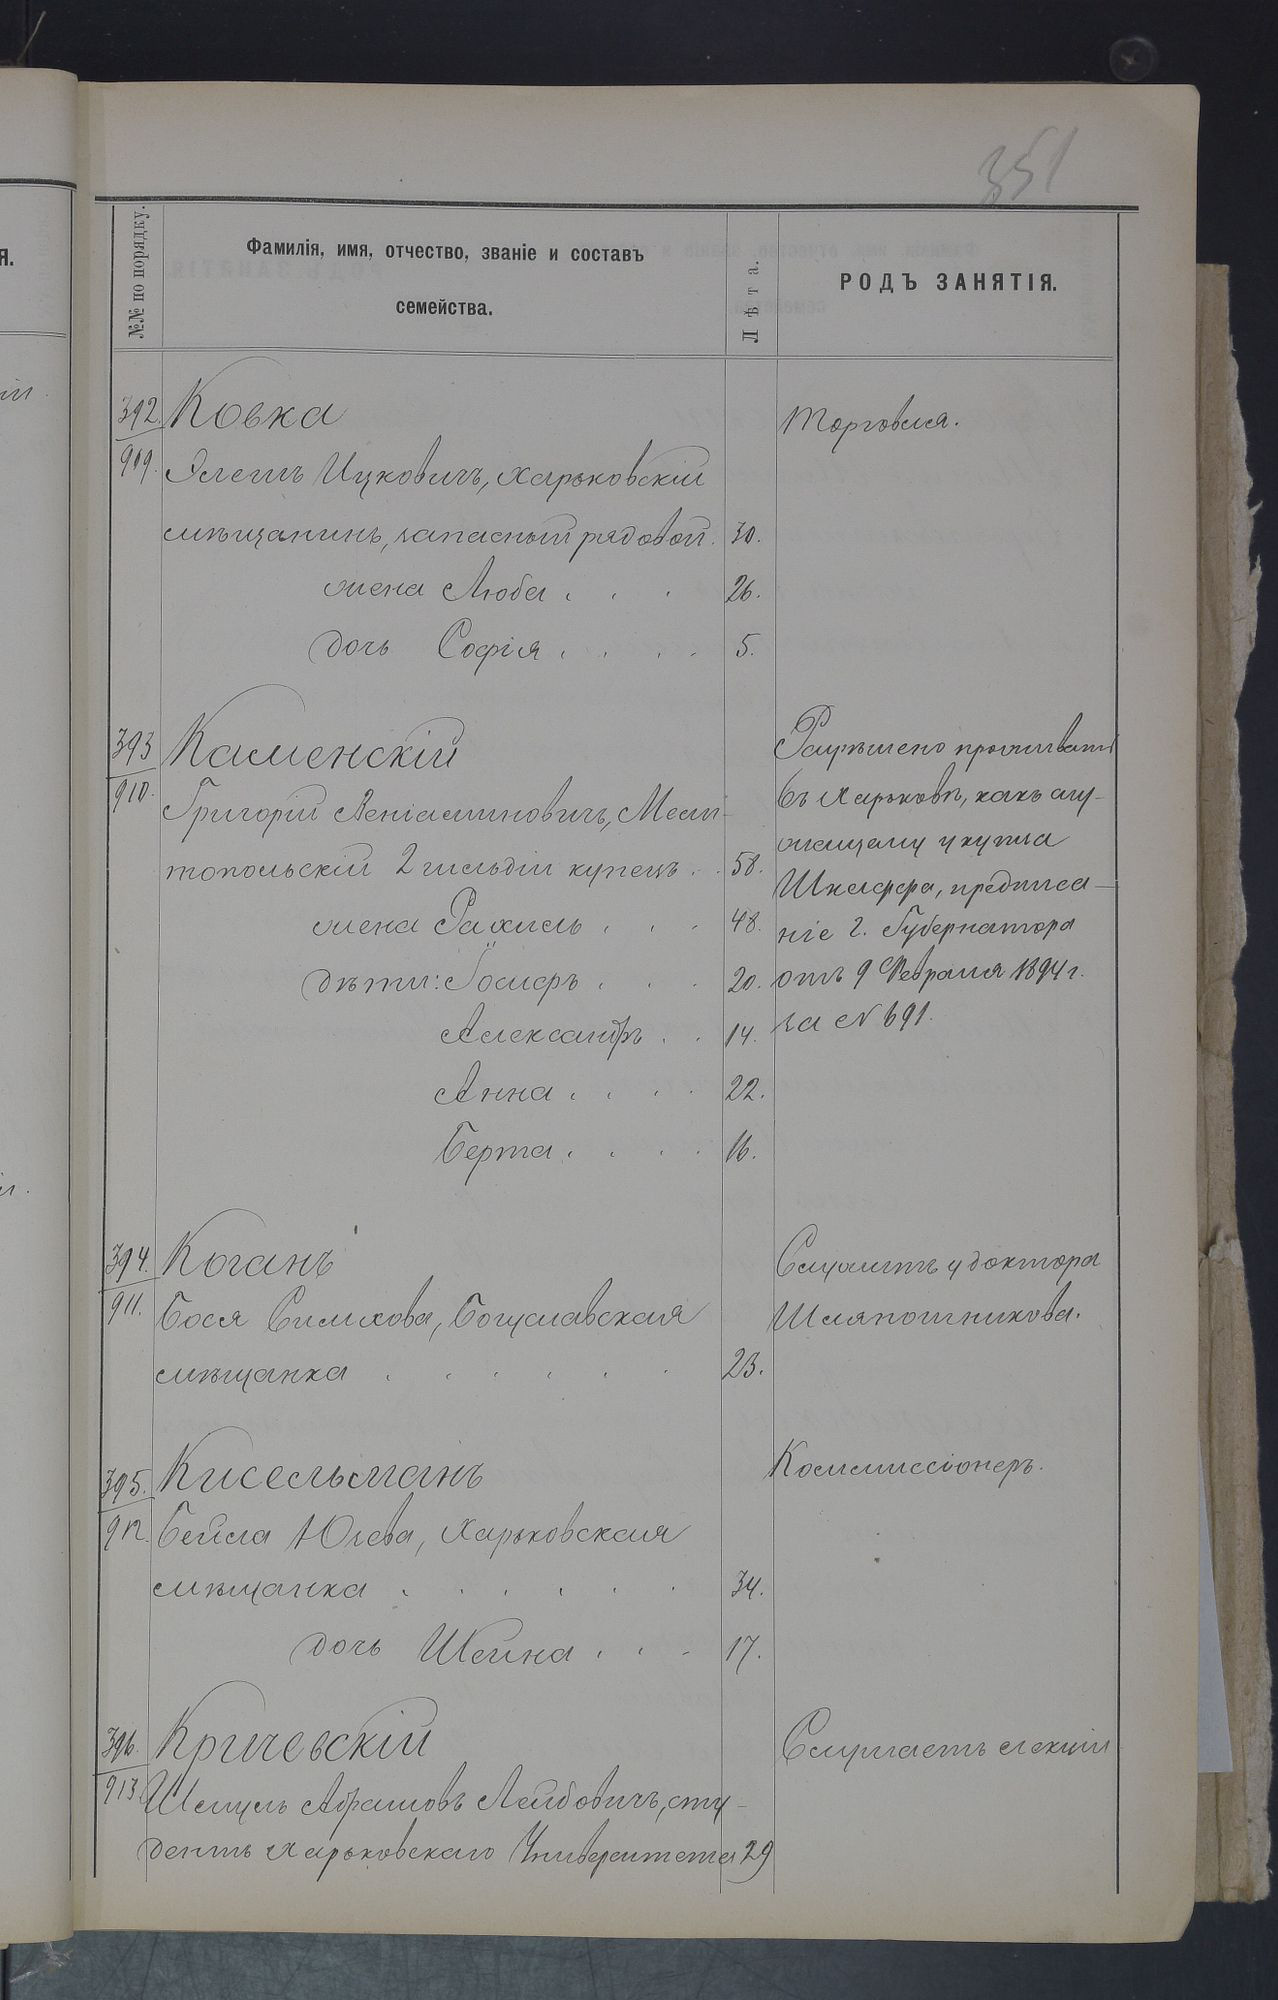 351
№№ по порядку.
Фамилія, имя, отчество, званіе и составъ
семейства.
Лѣта.
РОДЪ ЗАНЯТІЯ.
392. Ковка Торговля.
909. Ицковичъ, Харьковскій
мѣщанинъ, запасный рядовой. 30.
жена Люба 26.
дочь Софія 5.
393 Каменскій Разрѣшено проживать
910. Григорій Веніаминовичъ, Мели- въ Харьковѣ, какъ слу-
жащему у купца
топольскій 2 гильдіи купецъ 58. предписа-
жена Рахиль 48. ніе г. Губернатора
дѣти: Іосифъ 20. отъ 9 Февраля 1894 г.
Александръ 14. за № 691.
Анна 22.
Берта 16.
394. Коганъ Служитъ у доктора
911. Бося Симхова, Богуславская Шляпошникова.
мѣщанка 23.
395. Кисельманъ Коммиссіонеръ.
912. Бейла Юлева, Харьковская
мѣщанка 34.
дочь Шейна 17.
396. Кричевскій Слушаетъ лекціи
913. Шмуль Абрамовъ Лейбовичъ, сту-
дентъ Харьковскаго Университета 29